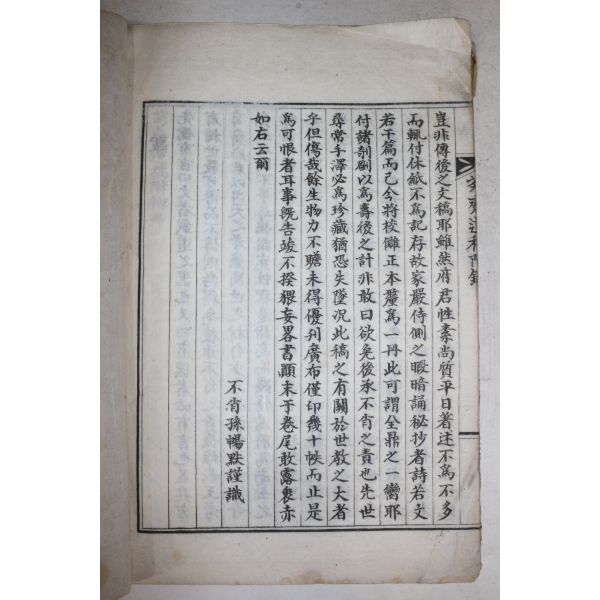 豈非傳後之文稿耶雖然府君性素尚質平日著述不爲不多
而輒付休紙不爲記存故家嚴侍側之暇暗誦秘抄者詩若文
若干篇而已今將校讎正本釐爲一丹此可謂全鼎之一臠耶
付諸剞劂以爲壽後之計非敢曰欲免後承不肖之責也先世
尋常手澤必爲珍藏猶恐失墜況此稿之有關於世教之大者
乎但傷哉餘生物力不贍未得優刋廣布僅印幾十帙而止是
爲可恨者耳事旣告竣不揆猥妄畧書顚末于卷尾敢露衷赤
如右云爾
不肖孫暢默謹識
齋遺稿附錄